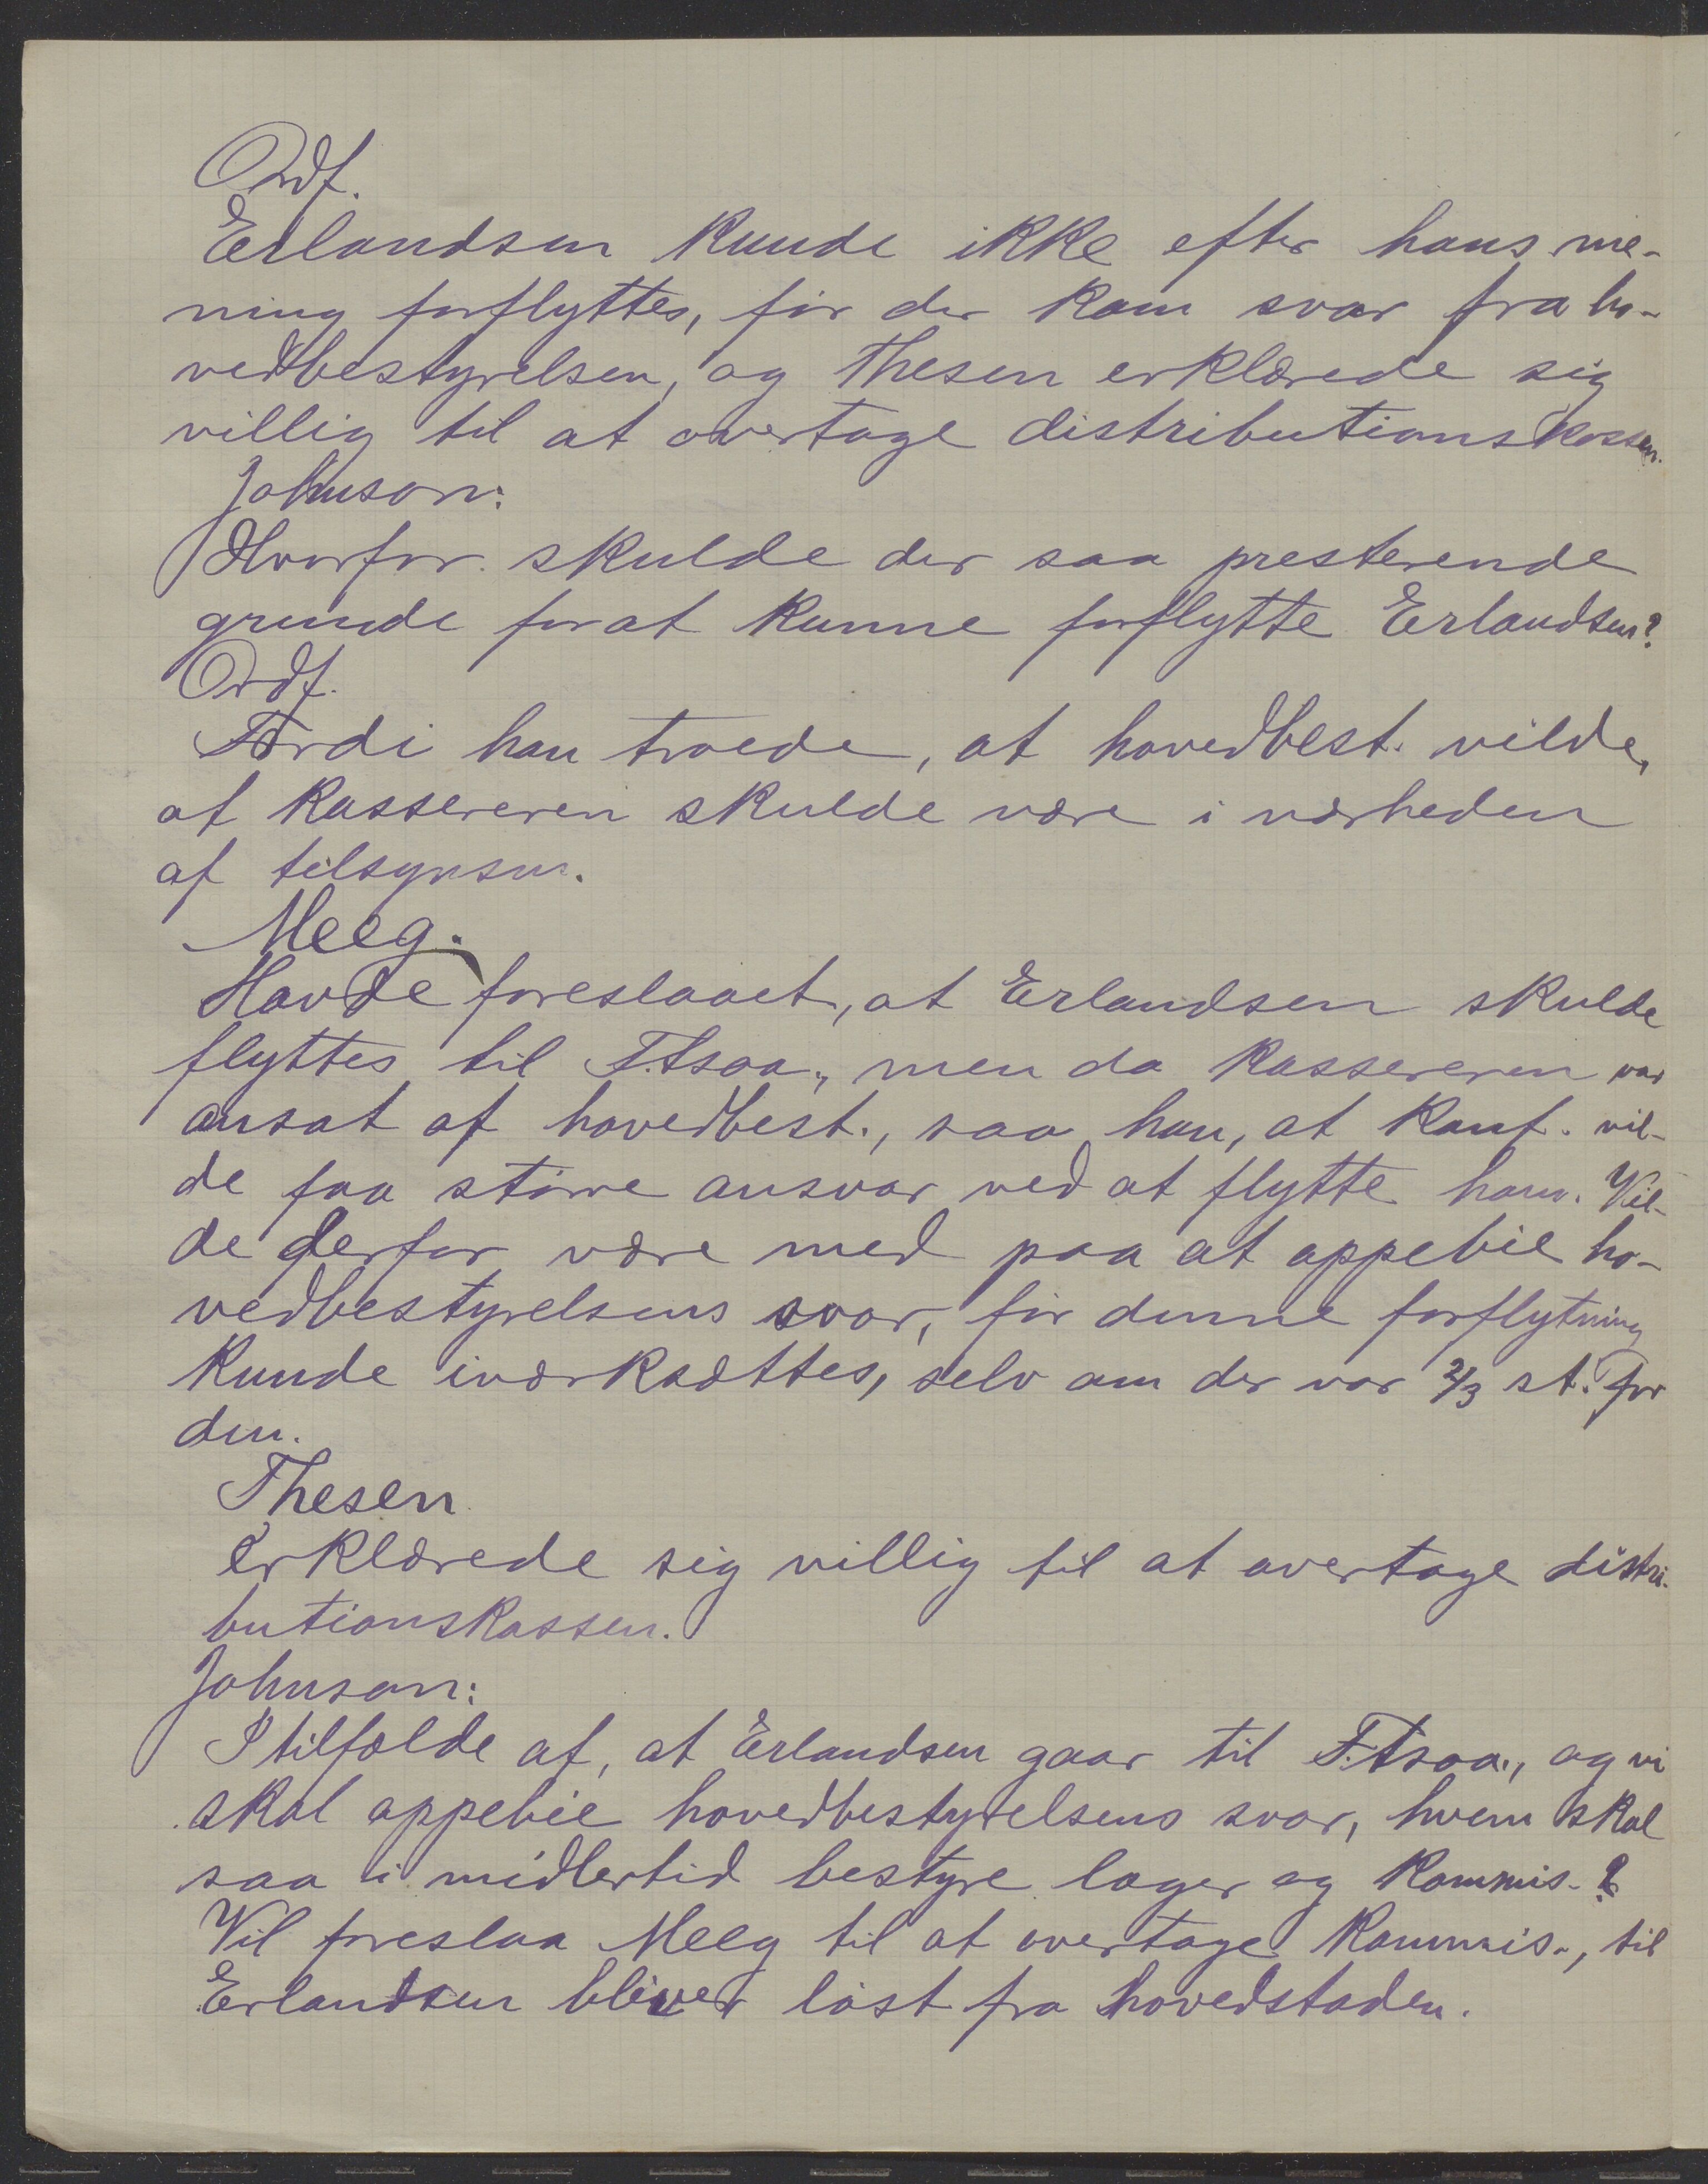 Ordf.
Erlandsen kunde ikke efter hans me-
ning forflyttes, før der kom svar fra ho-
vedbestyrelsen, og Thesen erklærede sig
villig til at overtage distributionskassen.
Johnson:
Hvorfor skulde der saa presterende
grunde forat kunne forflytte Erlandsen?
Ordf.
Fordi han troede, at hovedbest. vilde,
at kassereren skulde være i nærheden
af tilsynsm.
Meeg.
Havde foreslaaet, at Erlandsen skulde
flyttes til F.tsoa., men da kassereren var
ansat af hovedbest., saa han, at konf. vil-
de faa større ansvar ved at flytte ham. Vil-
de derfor være med paa at oppebie ho-
vedbestyrelsens svar, før denne forflytning
kunde iværksættes, selv om der var 2/3 st. for
den.
Thesen
erklærede sig villig til at overtage distri-
butionskassen.
Johnson:
I tilfælde af, at Erlandsen gaar til F.tsoa., og vi
skal oppebie hovedbestyrelsens svar, hvem skal
saa i midlertid bestyre lager og kommis.?
Vil foreslaa Meeg til at overtage kommis., til
Erlandsen bliver løst fra hovedstaden.